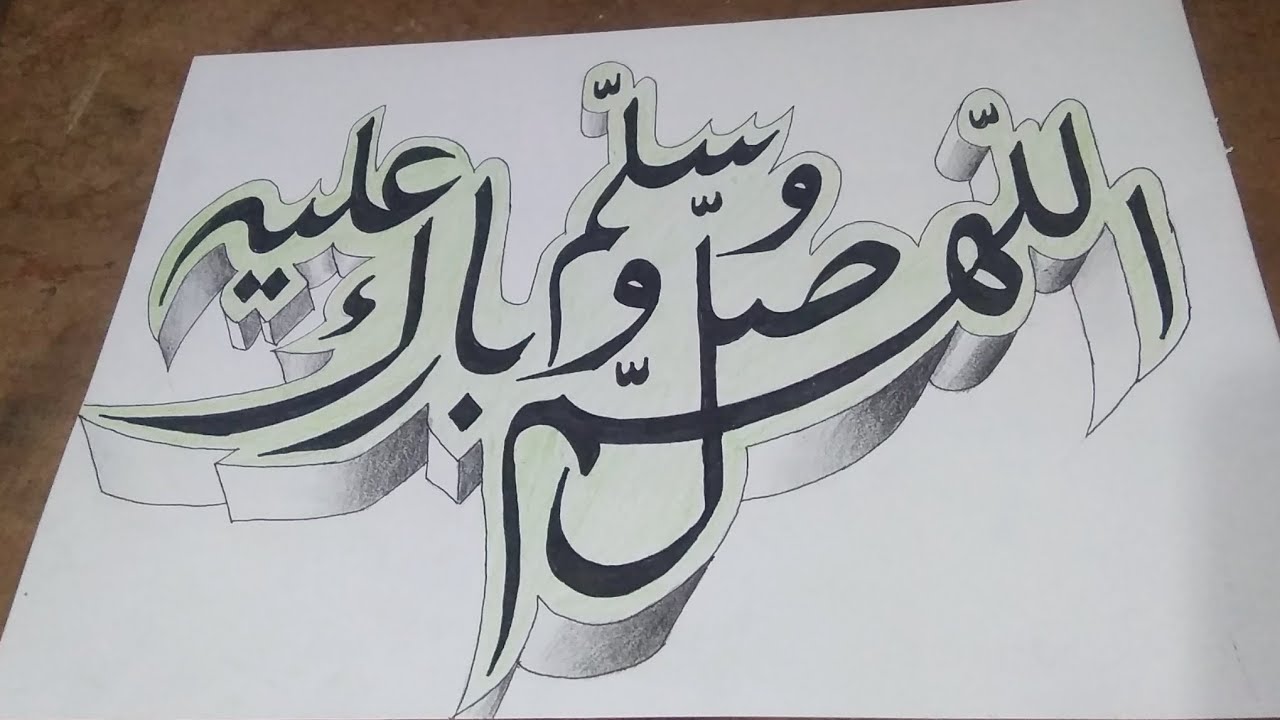 اللّهم صلّ وسلّم وبارك عليه